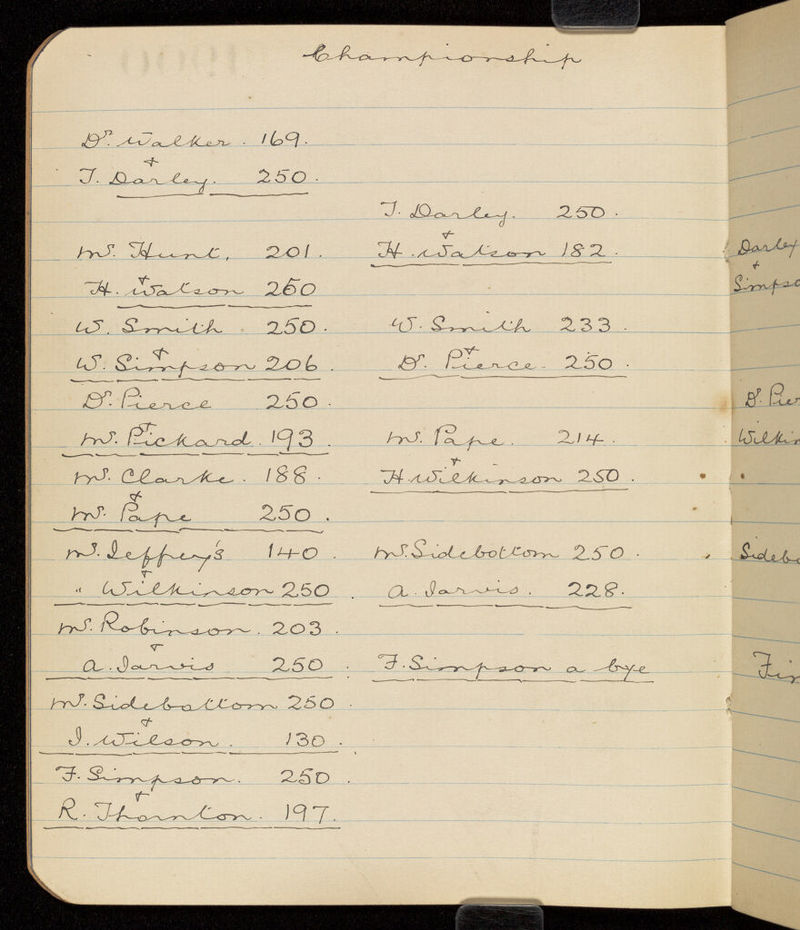 Championship
Dr. Walker. 169.
&
T. Darley. 250.
Mr. Hunt, 201.
&
H. Watson 250
W. Smith 250.
&
W. Simpson 206.
Dr. Pierce 250.
&
Mr. Pickard. 193.
Mr. Clarke. 188.
&
Mr. Pape 250.
Mr. Jeffrey's 140.
&
" Wilkinson 250.
Mr. Robinson. 203.
&
A. Jarvis 250.
Mr. Sidebottom 250.
&
J. Wilson. 130.
F. Simpson. 250.
&
R. Thornton. 197.
T. Darley. 250.
&
H. Watson 182.
W. Smith 233.
&
Dr. Pierce. 250.
Mr. Pape. 214.
&
H Wilkinson 250.
Mr. Sidebottom 250.
A. Jarvis. 228.
F. Simpson a bye
Darley
&
Simpso
Dr. Pier
Wilkin
Sidebo
Fin